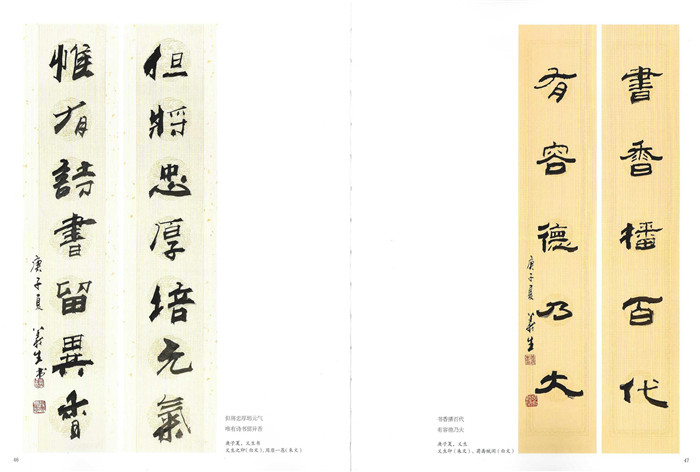 但將忠厚培元氣
惟有詩書留異香
庚子夏 義生书
但将忠厚培元气
唯有诗书留异香
庚子夏,义生书
义生之印(白文)、(朱文)
46
書香播百代
有容德乃大
庚子夏 義生
书香播百代
有容德乃大
庚子夏,义生
义生印(朱文)、(白文)
47